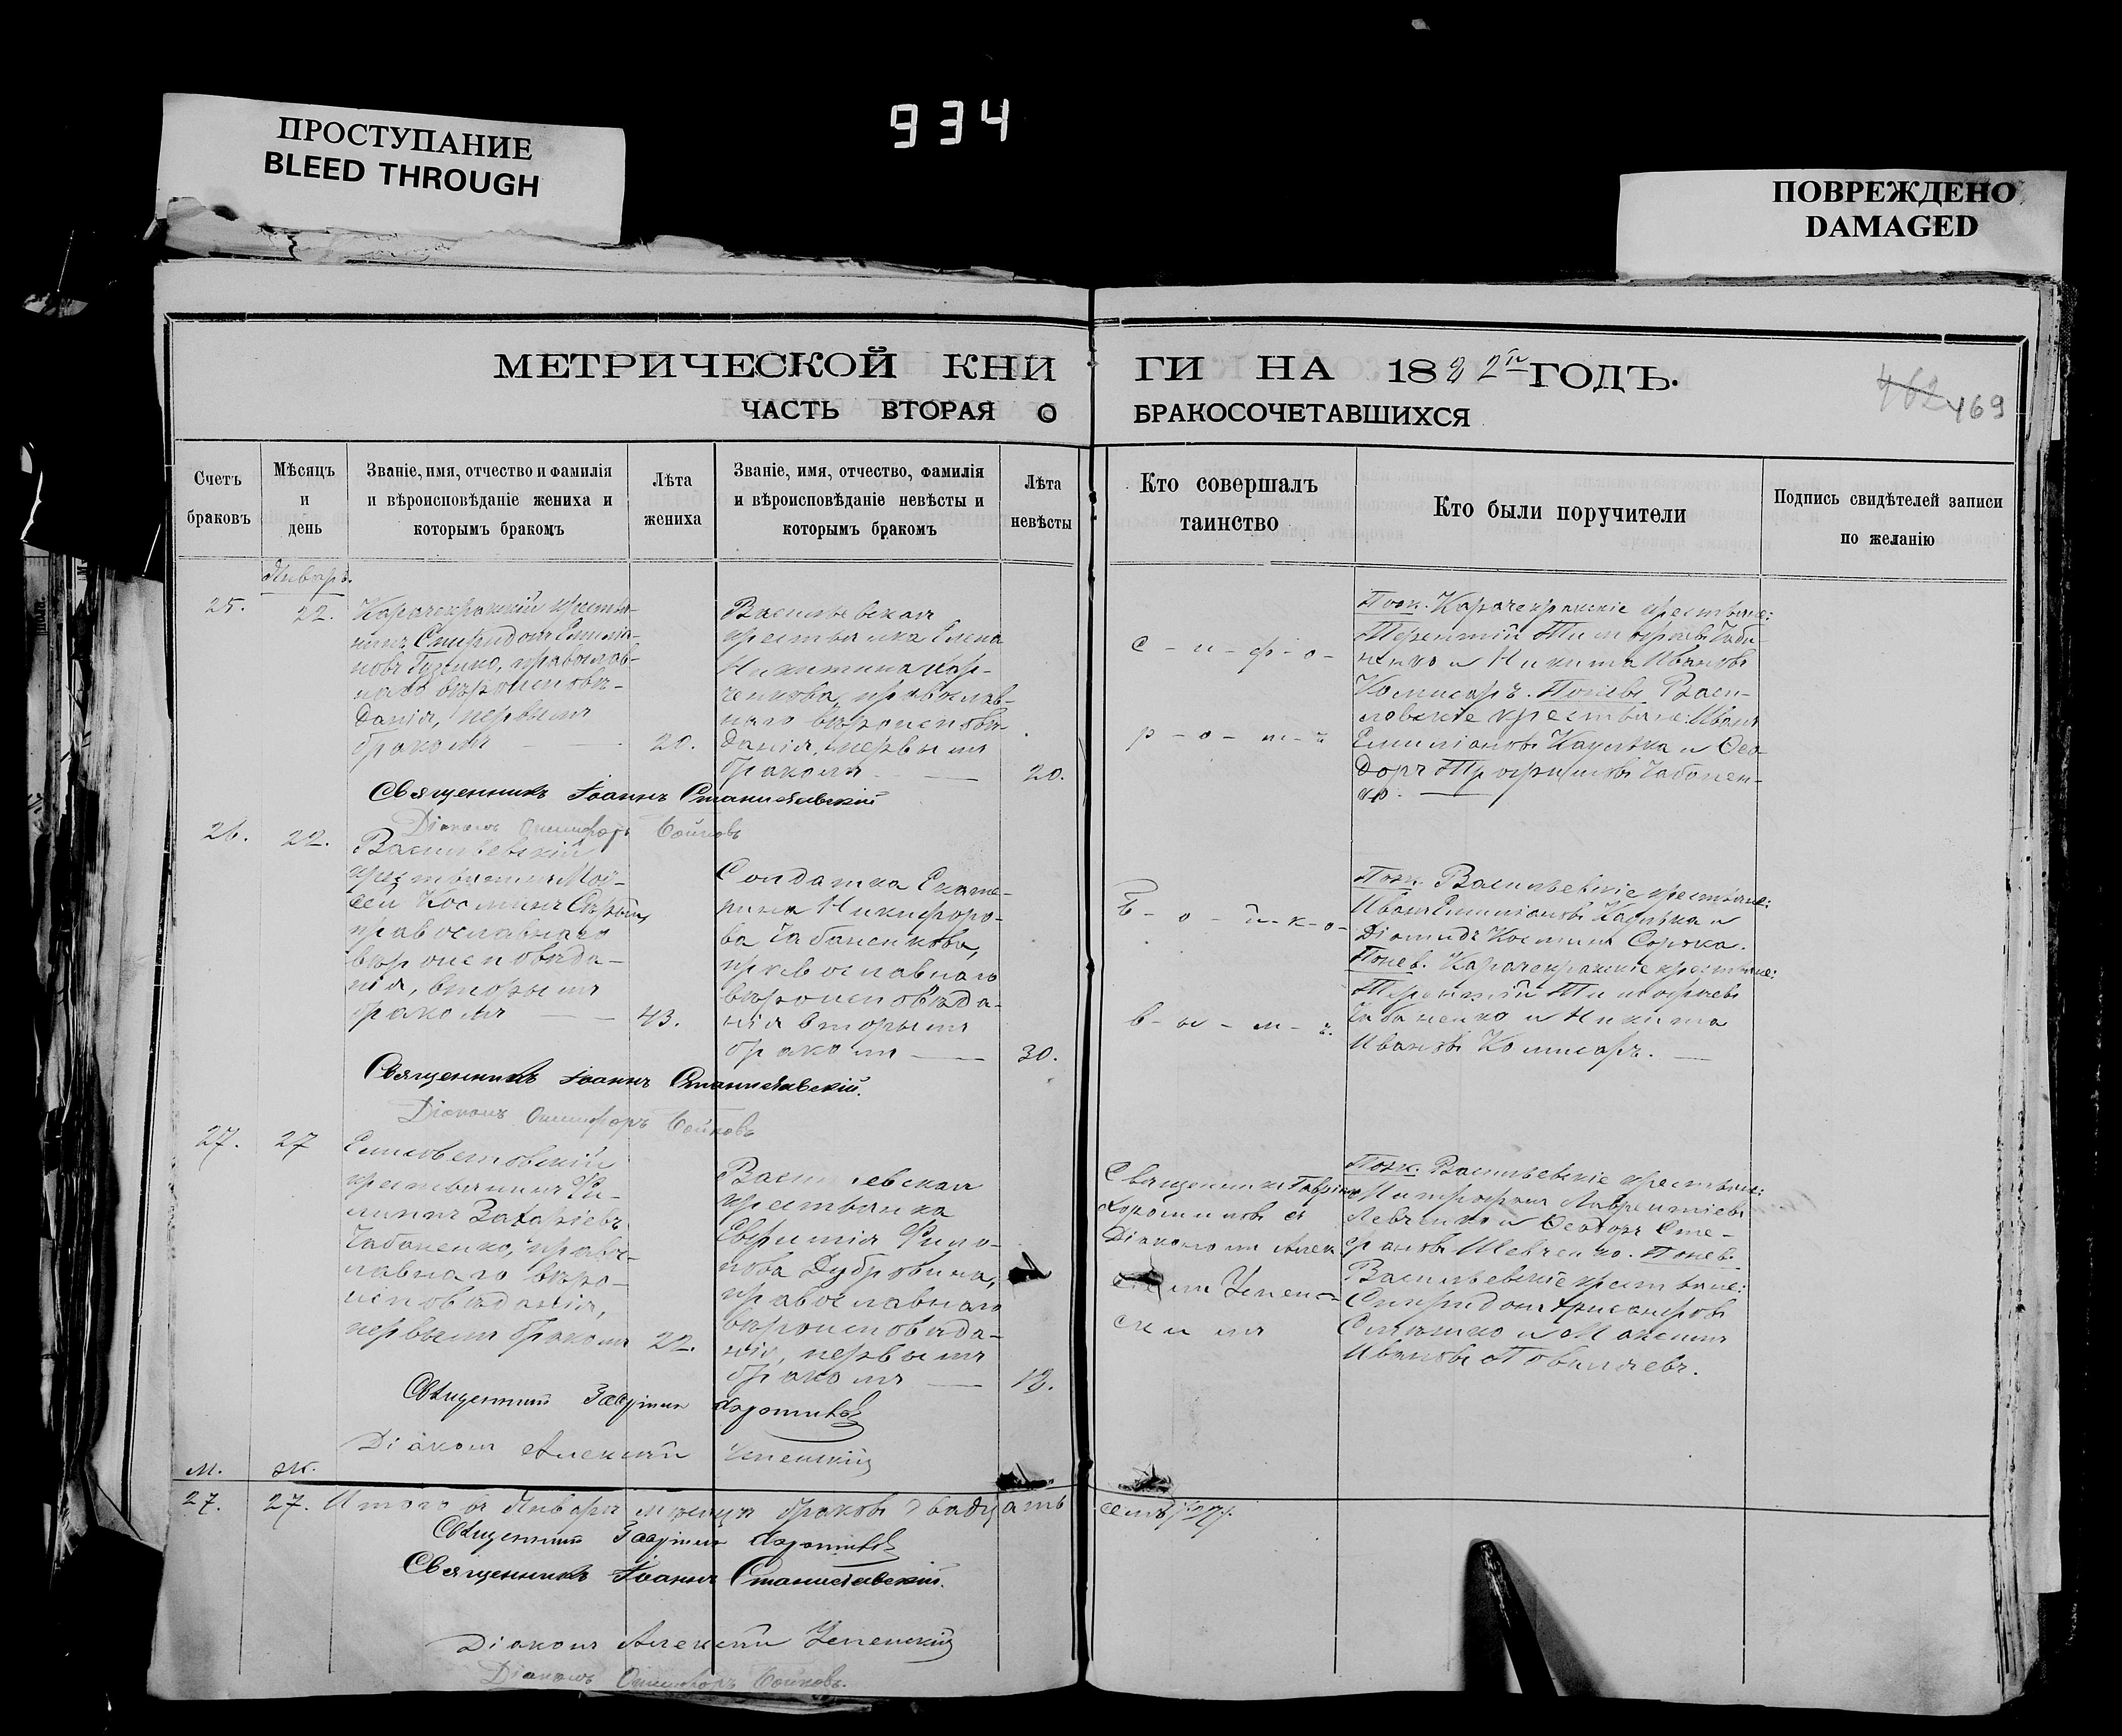 ПРОСТУПАНИЕ
BLEED THROUGH
934
ПОВРЕЖДЕНО
DAMAGED
МЕТРИЧЕСКОЙ КНИ
ГИ НА 1882й ГОДЪ.
462 469
ЧАСТЬ ВТОРАЯ О
БРАКОСОЧЕТАВШИХСЯ
Счетъ
браковъ
Мѣсяцъ
и
день
Званіе, имя, отчество и фамилія
и вѣроисповѣданіе жениха и
которымъ бракомъ
Лѣта
жениха
Званіе, имя, отчество, фамилія
и вѣроисповѣданіе невѣсты и
которымъ бракомъ
Лѣта
невѣсты
Кто совершалъ
таинство
Кто были поручители
Подпись свидѣтелей записи
по желанію
Январь.
25.
22.
Карачекракскій кресть-
нинъ Спиридонъ Емелія-
новъ Гуценко, православ-
наго вѣроисповѣ-
данія, первымъ
бракомъ
20.
Васильевская
крестьянка Елена
Никитина
православ-
наго вѣроисповѣ-
данія, первымъ
бракомъ
20.
с-и-ф-о-
р-о-м-ъ
Пож. Карачекракскіе крестьяне:
Терентій Тимофеевъ Чаба-
ненко и Никита Ивановъ
Комисаръ. Понев. Васи-
левскіе крестьяне: Иванъ
Емиліановъ Кацупка и Фео-
доръ Трофимовъ Чабанен-
ко.
Священникъ Іоаннъ Станиславскій
Діаконъ Онисифоръ Бойковъ
26.
22.
Васильевскій
крестьянинъ Мой-
сей Косминъ Сѣрый,
православнаго
вѣроисповѣда-
нія, вторымъ
бракомъ
43.
Солдатка Екате-
рина Никифоро-
ва Чабаненкова,
православнаго
вѣроисповѣда-
нія вторымъ
бракомъ
30.
Б-о-й-к-о-
в-ы-м-ъ.
Пож. Васильевскіе крестьяне:
Иванъ Емиліановъ Кацупка и
Діомидъ Косминъ Сорока.
Понев. Карачекракскіе крестьяне:
Терентій Тимофеевъ
Чабаненко и Никита
Ивановъ Комисаръ.
Священникъ Іоаннъ Станиславскій.
Діаконъ Онисифоръ Бойковъ
27.
27
Елисоветовскій
крестьянинъ Фи-
липпъ Захаріевъ
Чабаненко, право-
лавнаго вѣро-
исповѣданія,
первымъ бракомъ
22.
Васильевская
крестьянка
Евфимія Фили-
пова Дубровина,
православнаго
вѣроисповѣда-
нія, первымъ
бракомъ
Священникъ Гавріилъ
Хорошиловъ съ
Діакономъ Алек-
сѣемъ Успен-
скимъ
Пож. Васильевскіе крестьяне:
Митрофанъ Лаврентіевъ
Левченко и Феодоръ Сте-
фановъ Шевченко. Понев.
Васильевскіе крестьяне:
Спиридонъ
и Максимъ
Ивановъ
Священникъ Гавріилъ Хорошиловъ
Діаконъ Алексѣй Успенскій
м.
ж.
27.
27.
Итого въ Январѣ мѣсяцѣ браковъ двадцать семь /27/.
Священникъ Гавріилъ Хорошиловъ
Священникъ Іоаннъ Станиславскій.
Діаконъ Алексѣй Успенскій
Діаконъ Онисифоръ Бойковъ.